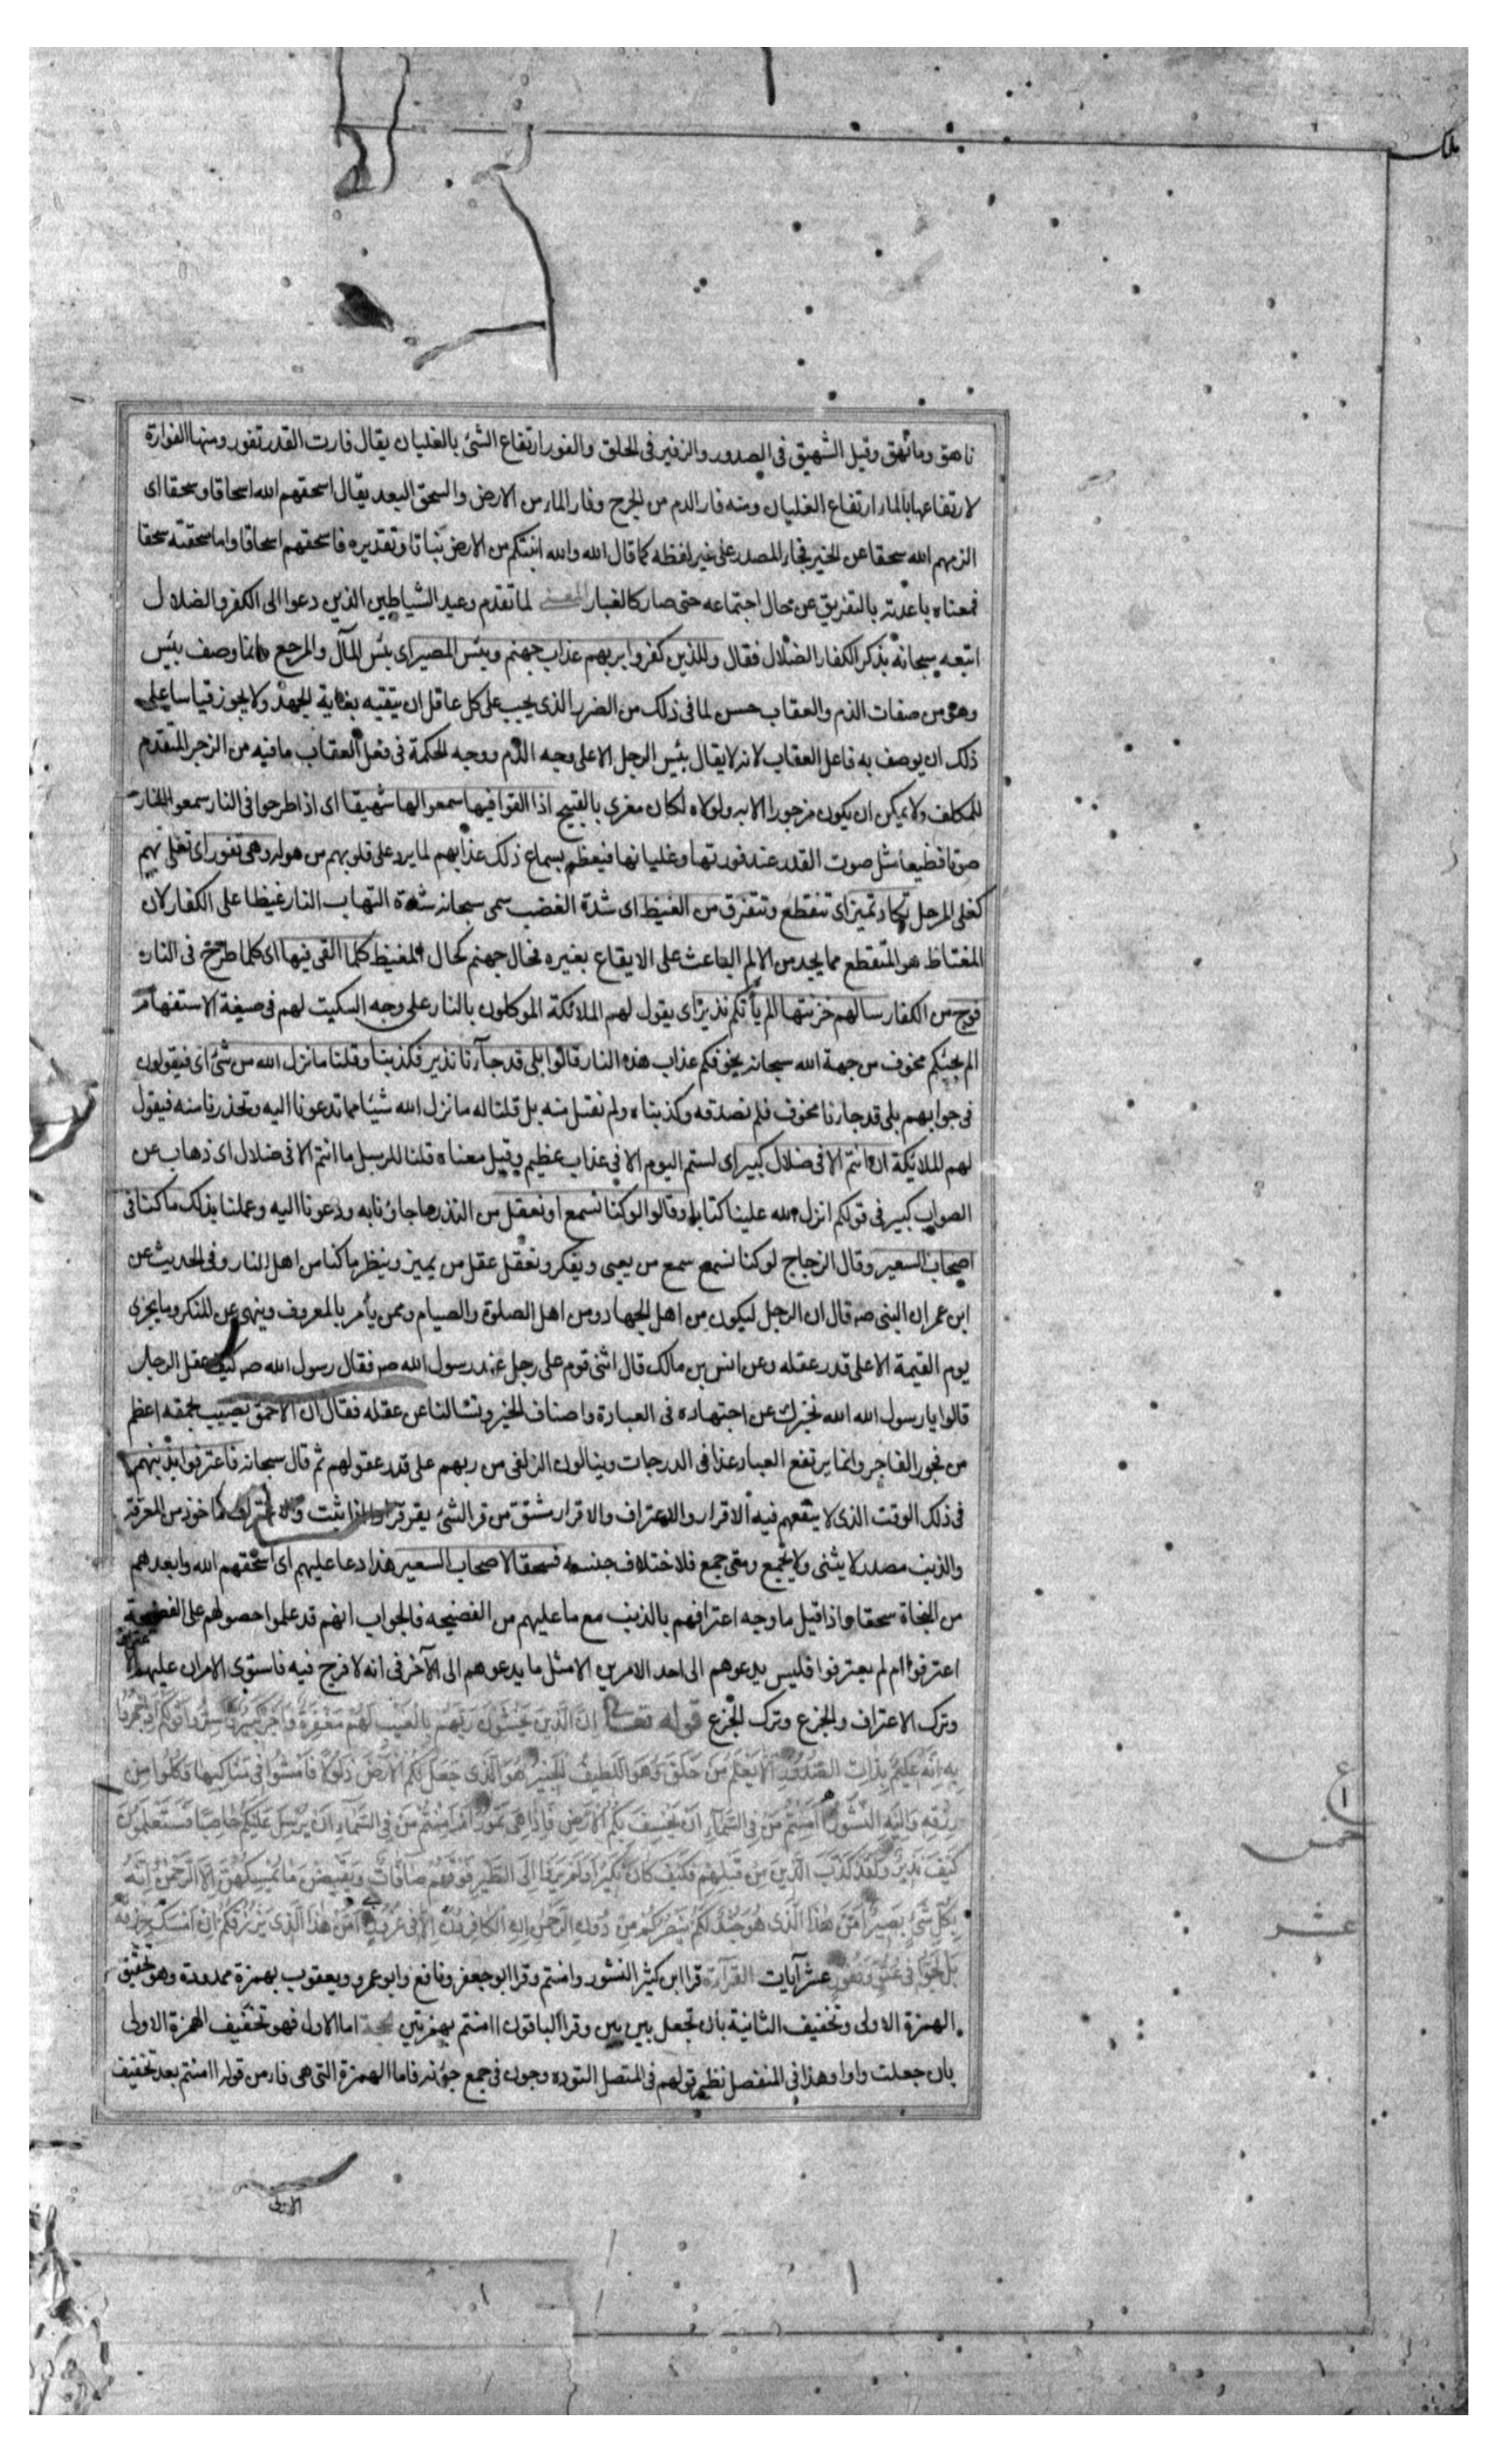 ملك
ناهق ونهاق وقيل الشهيق فى الصدور والزفير فى الحلق والفور ارتفاع الشئ بالغليان يقال فارت القدر تفور ومنها الفوارة
لارتفاعها بالماء ارتفاع الغليان ومنه فار الدم من الجرح وفار الماء من الارض والسحق البعد يقال اسحقهم الله اسحاقا وسحقا اى
الزمهم الله سحقا عن الخير فجاء المصدر على غير لفظه كما قال الله والله انبتكم من الارض نباتا وتقديره فاسحقهم اسحاقا واما سحقته سحقا
فمعناه باعدته بالتفريق عن حال اجتماعه حتى صار كالغبار المعنى لما تقدم وعيد الشياطين الذين دعوا الى الكفر والضلال
اتبعه سبحانه بذكر الكفار الضلال فقال وللذين كفروا بربهم عذاب جهنم وبئس المصير اى بئس المآل والمرجع وانما وصف ببئس
وهى من صفات الذم والعقاب حسن لما فى ذلك من الضرر الذى يجب على كل عاقل ان يتقيه بغاية الجهد ولا يجوز قياسا على
ذلك ان يوصف به فاعل العقاب لانه لا يقال بئس الرجل الا على وجه الذم ووجه الحكمة فى فعل العقاب ما فيه من الزجر المتقدم
للمكلف ولا يمكن ان يكون مزجورا الا به ولولاه لكان مغرى بالقبيح اذا القوا فيها سمعوا لها شهيقا اى اذا طرحوا فى النار سمعوا للنار
صوتا فظيعا مثل صوت القدر عند فورتها وغليانها فيعظم بسماع ذلك عذابهم لما يرد على قلوبهم من هوله وهى تفور اى تغلى بهم
كغلى المرجل تكاد تميز اى تتقطع وتتفرق من الغيظ اى شدة الغضب سمى سبحانه شدة التهاب النار غيظا على الكفار لان
المغتاظ هو المتقطع مما يجد من الالم الباعث على الايقاع بغيره فحال جهنم كحال المغيظ كلما القى فيها اى كلما طرح فى النار
فوج من الكفار سالهم خزنتها الم يأتكم نذير اى يقول لهم الملائكة الموكلون بالنار على وجه التبكيت لهم فى صيغة الاستفهام
الم يجئكم مخوف من جهة الله سبحانه يخوفكم عذاب هذه النار قالوا بلى قد جاءنا نذير فكذبنا وقلنا ما نزل الله من شئ اى فيقولون
فى جوابهم بلى قد جاءنا مخوف فلم نصدقه وكذبناه ولم نقبل منه بل قلنا له ما نزل الله شيئا مما تدعونا اليه وتحذرنا منه فيقول
لهم الملائكة ان انتم الا فى ضلال كبير اى لستم اليوم الا فى عذاب عظيم وقيل معناه قلنا للرسل ما انتم الا فى ضلال اى ذهاب عن
الصواب كبير فى قولكم انزل الله علينا كتابا وقالوا لو كنا نسمع او نعقل من النذر ما جاؤنا به ودعونا اليه وعملنا بذلك ما كنا فى
اصحاب السعير وقال الزجاج لو كنا نسمع سمع من يعى ويفكر ونعقل عقل من يميز وينظر ما كنا من اهل النار وفى الحديث عن
ابن عمر ان النبى صه قال ان الرجل ليكون من اهل الجهاد ومن اهل الصلوة والصيام وممن يأمر بالمعروف وينهى عن المنكر وما يجزى
يوم القيمة الا على قدر عقله وعن انس بن مالك قال اثنى قوم على رجل عند رسول الله صه فقال رسول الله صه كيف عقل الرجل
قالوا يا رسول الله نخبرك عن اجتهاده فى العبادة واصناف الخير وتسألنا عن عقله فقال ان الاحمق يصيب بحمقه اعظم
من فجور الفاجر وانما يرتفع العباد غدا فى الدرجات وينالون الزلفى من ربهم على قدر عقولهم ثم قال سبحانه فاعترفوا بذنبهم
فى ذلك الوقت الذى لا ينفعهم فيه الاقرار والاعتراف والاقرار مشتق من قر الشئ يقر قرارا اذا ثبت والاعتراف مأخوذ من المعرفة
والذنب مصدر لا يثنى ولا يجمع ومتى جمع فلاختلاف جنسه فسحقا لاصحاب السعير هذا دعا عليهم اى اسحقهم الله وابعدهم
من النجاة سحقا واذا قيل ما وجه اعترافهم بالذنب مع ما عليهم من الفضيحه فالجواب انهم قد علموا حصولهم على الفضيحة
اعترفوا ام لم يعترفوا فليس يدعوهم الى احد الامرين الا مثل ما يدعوهم الى الآخر فى انه لا فرج فيه فاستوى الامران عليهم
وترك الاعتراف والجزع وترك الجزع قوله تعالى ان الذين يخشون ربهم بالغيب لهم مغفرة واجر كبير واسروا قولكم او اجهروا
به انه عليم بذات الصدور الا يعلم من خلق وهو اللطيف الخبير هو الذى جعل لكم الارض ذلولا فامشوا فى مناكبها وكلوا من
رزقه واليه النشور أامنتم من فى السماء ان يخسف بكم الارض فاذا هى تمور ام امنتم من فى السماء ان يرسل عليكم حاصبا فستعلمون
كيف نذير ولقد كذب الذين من قبلهم فكيف كان نكير اولم يروا الى الطير فوقهم صافات ويقبضن ما يمسكهن الا الرحمن انه
بكل شئ بصير امن هذا الذى هو جند لكم ينصركم من دون الرحمن ان الكافرون الا فى غرور امن هذا الذى يرزقكم ان امسك رزقه
بل لجوا فى عتو ونفور عشر آيات القراءة قرا ابن كثير النشور وامنتم وقرا ابو جعفر ونافع وابو عمرو ويعقوب بهمزة ممدودة وهو تحقيق
الهمزة الاولى وتخفيف الثانية بان تجعل بين بين وقرا الباقون اامنتم بهمزتين الحجة اما الاول فهو تخفيف الهمزة الاولى
بان جعلت واوا وهذا فى المنفصل نظير قولهم فى المتصل التوده وجون فى جمع جؤنه فاما الهمزة التى هى فاء من قوله اامنتم بعد تخفيف
خمس
عشر
الاولى